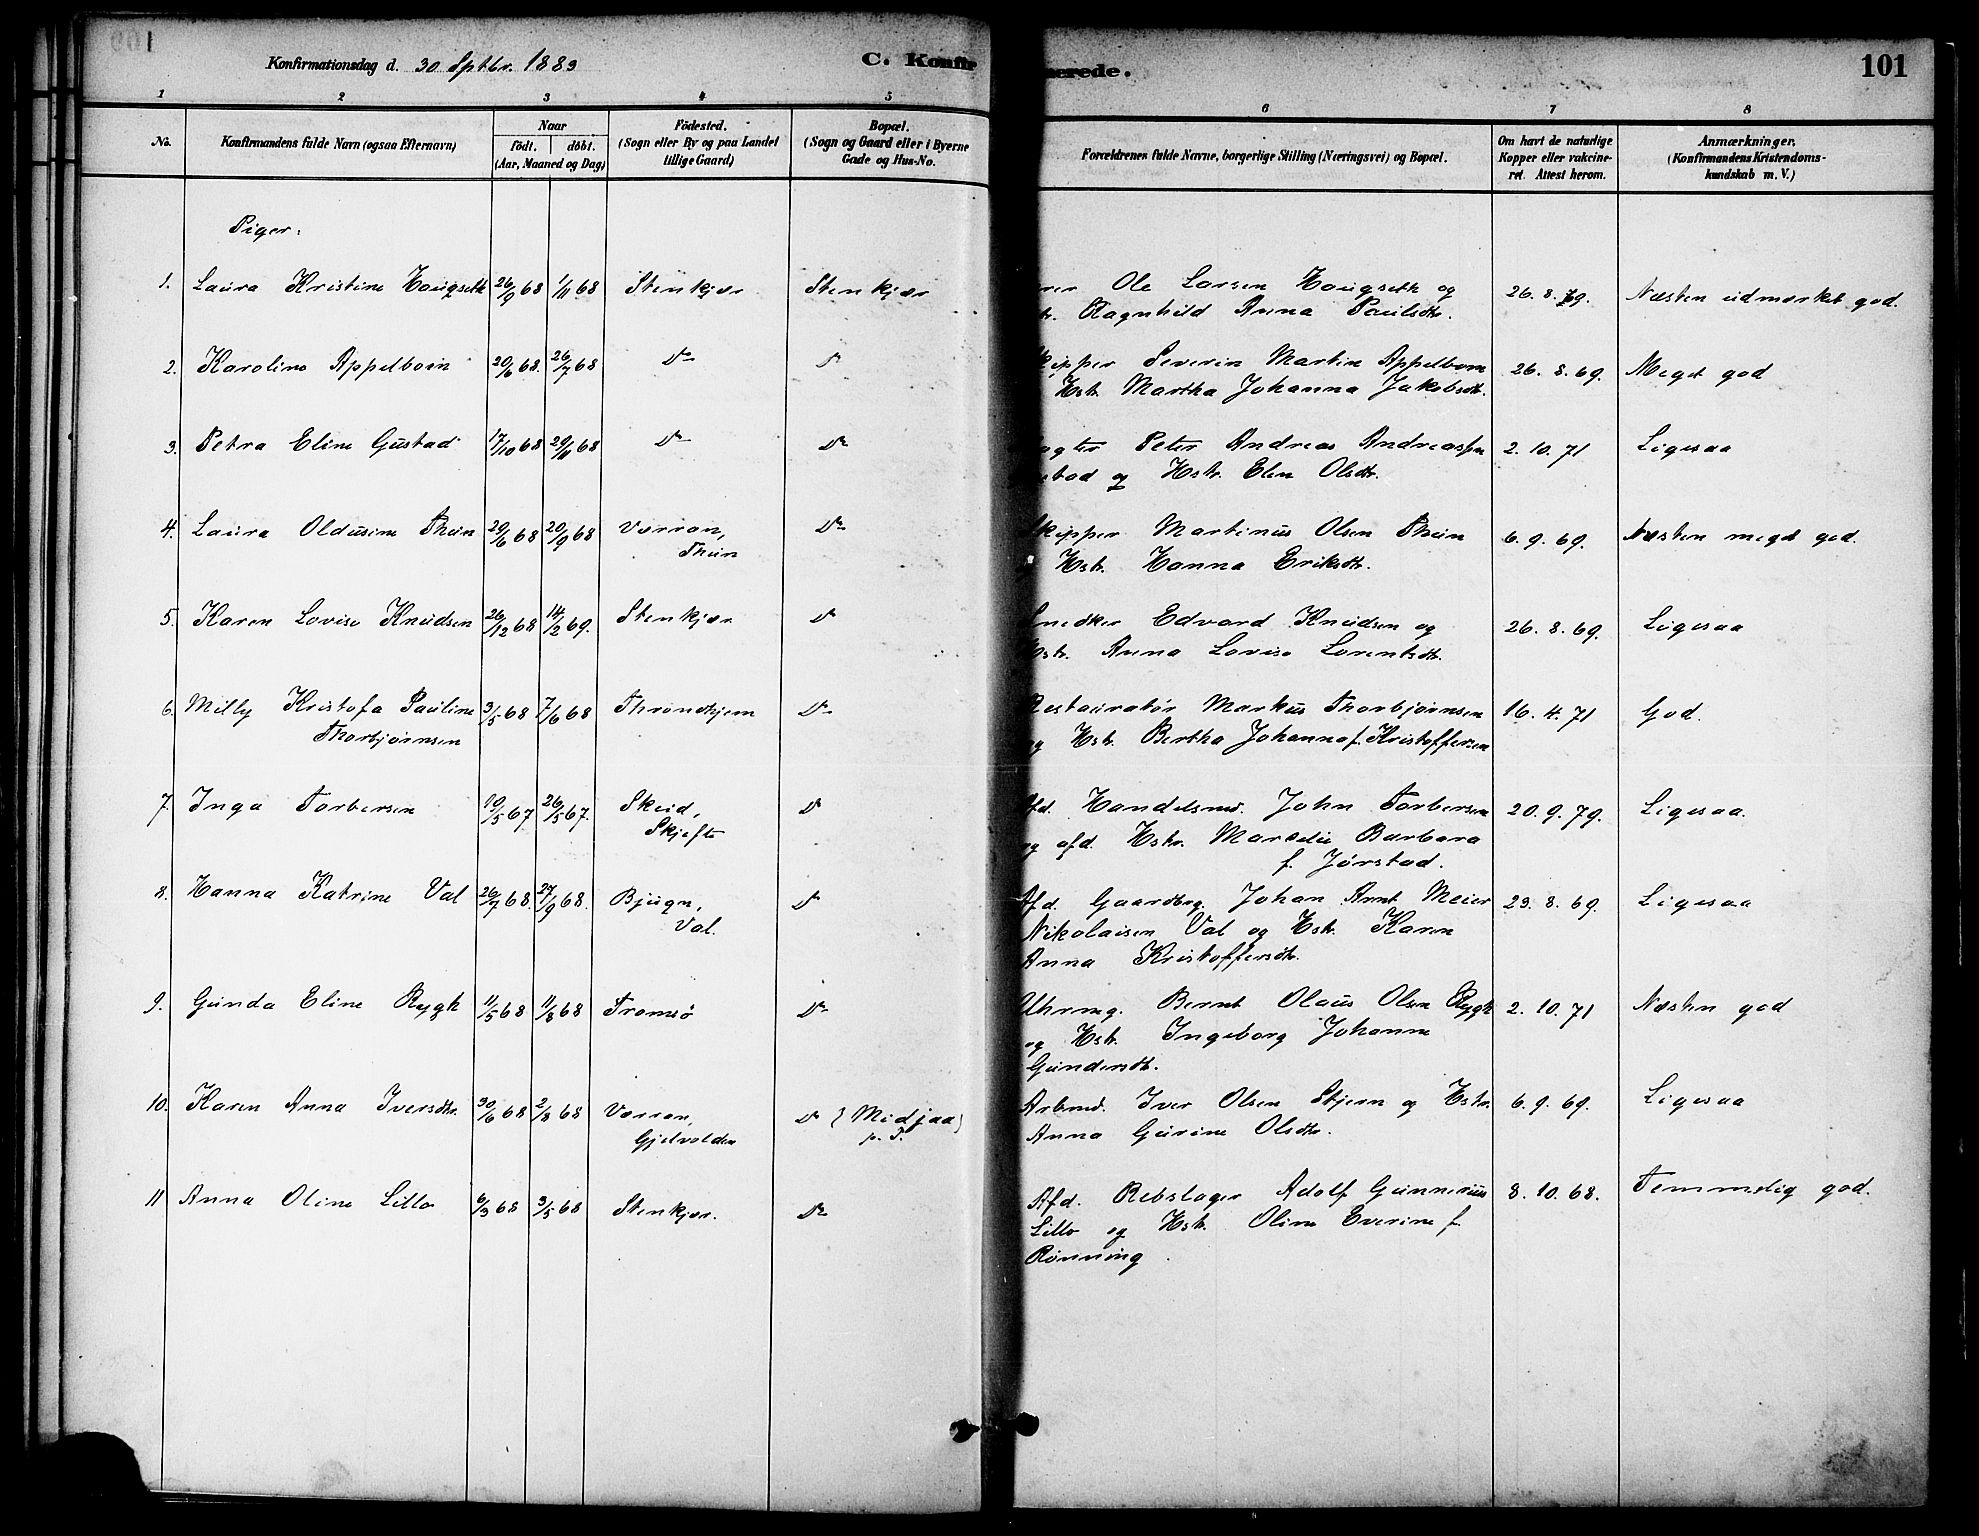 Konfirmationsdag d. 30 Sptbr. 1883
C. Konfirmerede.
101
1 2 3 4 5 6 7 8
No.
Konfirmandens fulde Navn (ogsaa Efternavn)
Naar
födt. döbt.
(Aar, Maaned og Dag)
Födested.
(Sogn eller By og paa Landet
tillige Gaard)
Bopæl.
(Sogn og Gaard eller i Byerne
Gade og Hus-No.
Forældrenes fulde Navne, borgerlige Stilling (Næringsvei) og Bopæl.
Om havt de naturlige
Kopper eller vakcine-
ret. Attest herom.
Anmærkninger.
(Konfirmandens Kristendoms-
kundskab m. V.)
Piger:
1. Laura Kristine Haugseth 26/9 68 1/11 68 Stenkjær Stenkjær Ole Larsen Haugseth og 26. 8. 69. Næsten udmærket god.
Ragnhild Anna Paulsdtr.
2. Karoline Appelbom 20/6 68. 26/7 68 Do Do Skipper Severin Martin Appelbom 26. 8. 69. Meget god
Hstr. Martha Johanna Jakobsdtr.
3. Petra Eline Gustad 17/10 68 29/11 68 Do Do Peter Andreas Andreassen 2. 10. 71 Ligesaa
og Hstr. Elen Olsdtr.
4. Laura Oldusine Thun 29/6 68 20/9 68 Værran, Do Skipper Martinus Olsen Thun 6. 9. 69. Næsten meget god.
Thun
Hstr. Hanna Eriksdtr.
5. Karen Lovise Knudsen 26/12 68 14/2 69. Stenkjær Do Snedker Edvard Knudsen og 26. 8. 69. Ligesaa
Hstr. Anna Lovise Lorentsdtr.
6. Milly Kristofa Pauline 3/5 68 7/6 68 Throndhjem Do Restauratør Markus Thorbjørnsen 16. 4. 71 God.
Thorbjørnsen
og Hstr. Bertha Johanna f. Kristoffersen
7. Inga Torbersen 10/5 67 26/5 67. Skeid, Do Afd. Handelsmd. John Torbersen 20. 9. 79. Ligesaa.
Skjefte
og afd. Hstr. Marselie Barbara
f. Jørstad.
8. Hanna Katrine Val 26/7 68. 27/9 68. Bjugn, Do Afd. Gaardbrg. Johan Arnt Meier 23. 8. 69. Ligesaa
Val.
Nikolaisen Val og Hstr. Karen
Anna Kristoffersdtr.
9. Gunda Eline Rygh 11/5 68 11/8 68 Tromsø Do Uhrmg. Bernt Olaus Olsen Rygh 2. 10. 71 Næsten god
og Hstr. Ingeborg Johanne
Gundersdtr.
10. Karen Anna Iversdtr. 30/6 68 2/8 68 Værran, Do (Midjaa) Arbmd. Iver Olsen Stjern og Hstr. 6. 9. 69. Ligesaa
Gjelvolden p. T.
Anna Gurine Olsdtr.
11 Anna Oline Lillo 6/3 68 3/5 68 Stenkjær. Do Afd. Rebslager Adolf Gunnerius 8. 10. 68. Temmelig god.
Lillo og Hstr. Oline Everine f.
Rønning